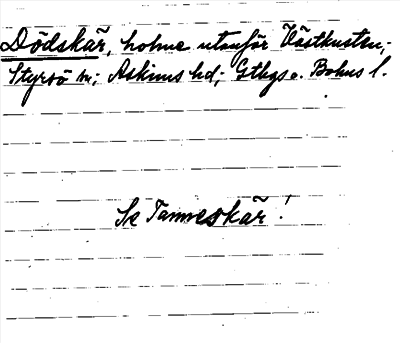 Dödskär, holme utanför Västkusten;
Styrsö sn; Askims hd; Gtbgs o. Bohus l.
Se Tanneskär!